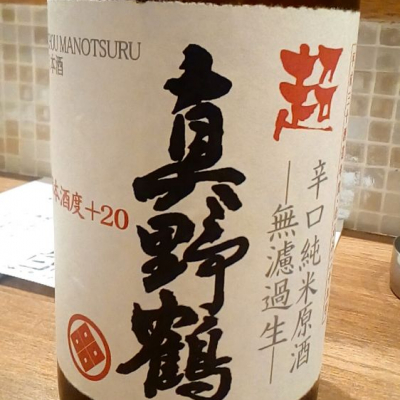 OU MANOTSURU
本酒
超
真野鶴
辛口純米原酒
―無濾過生―
本酒度+20